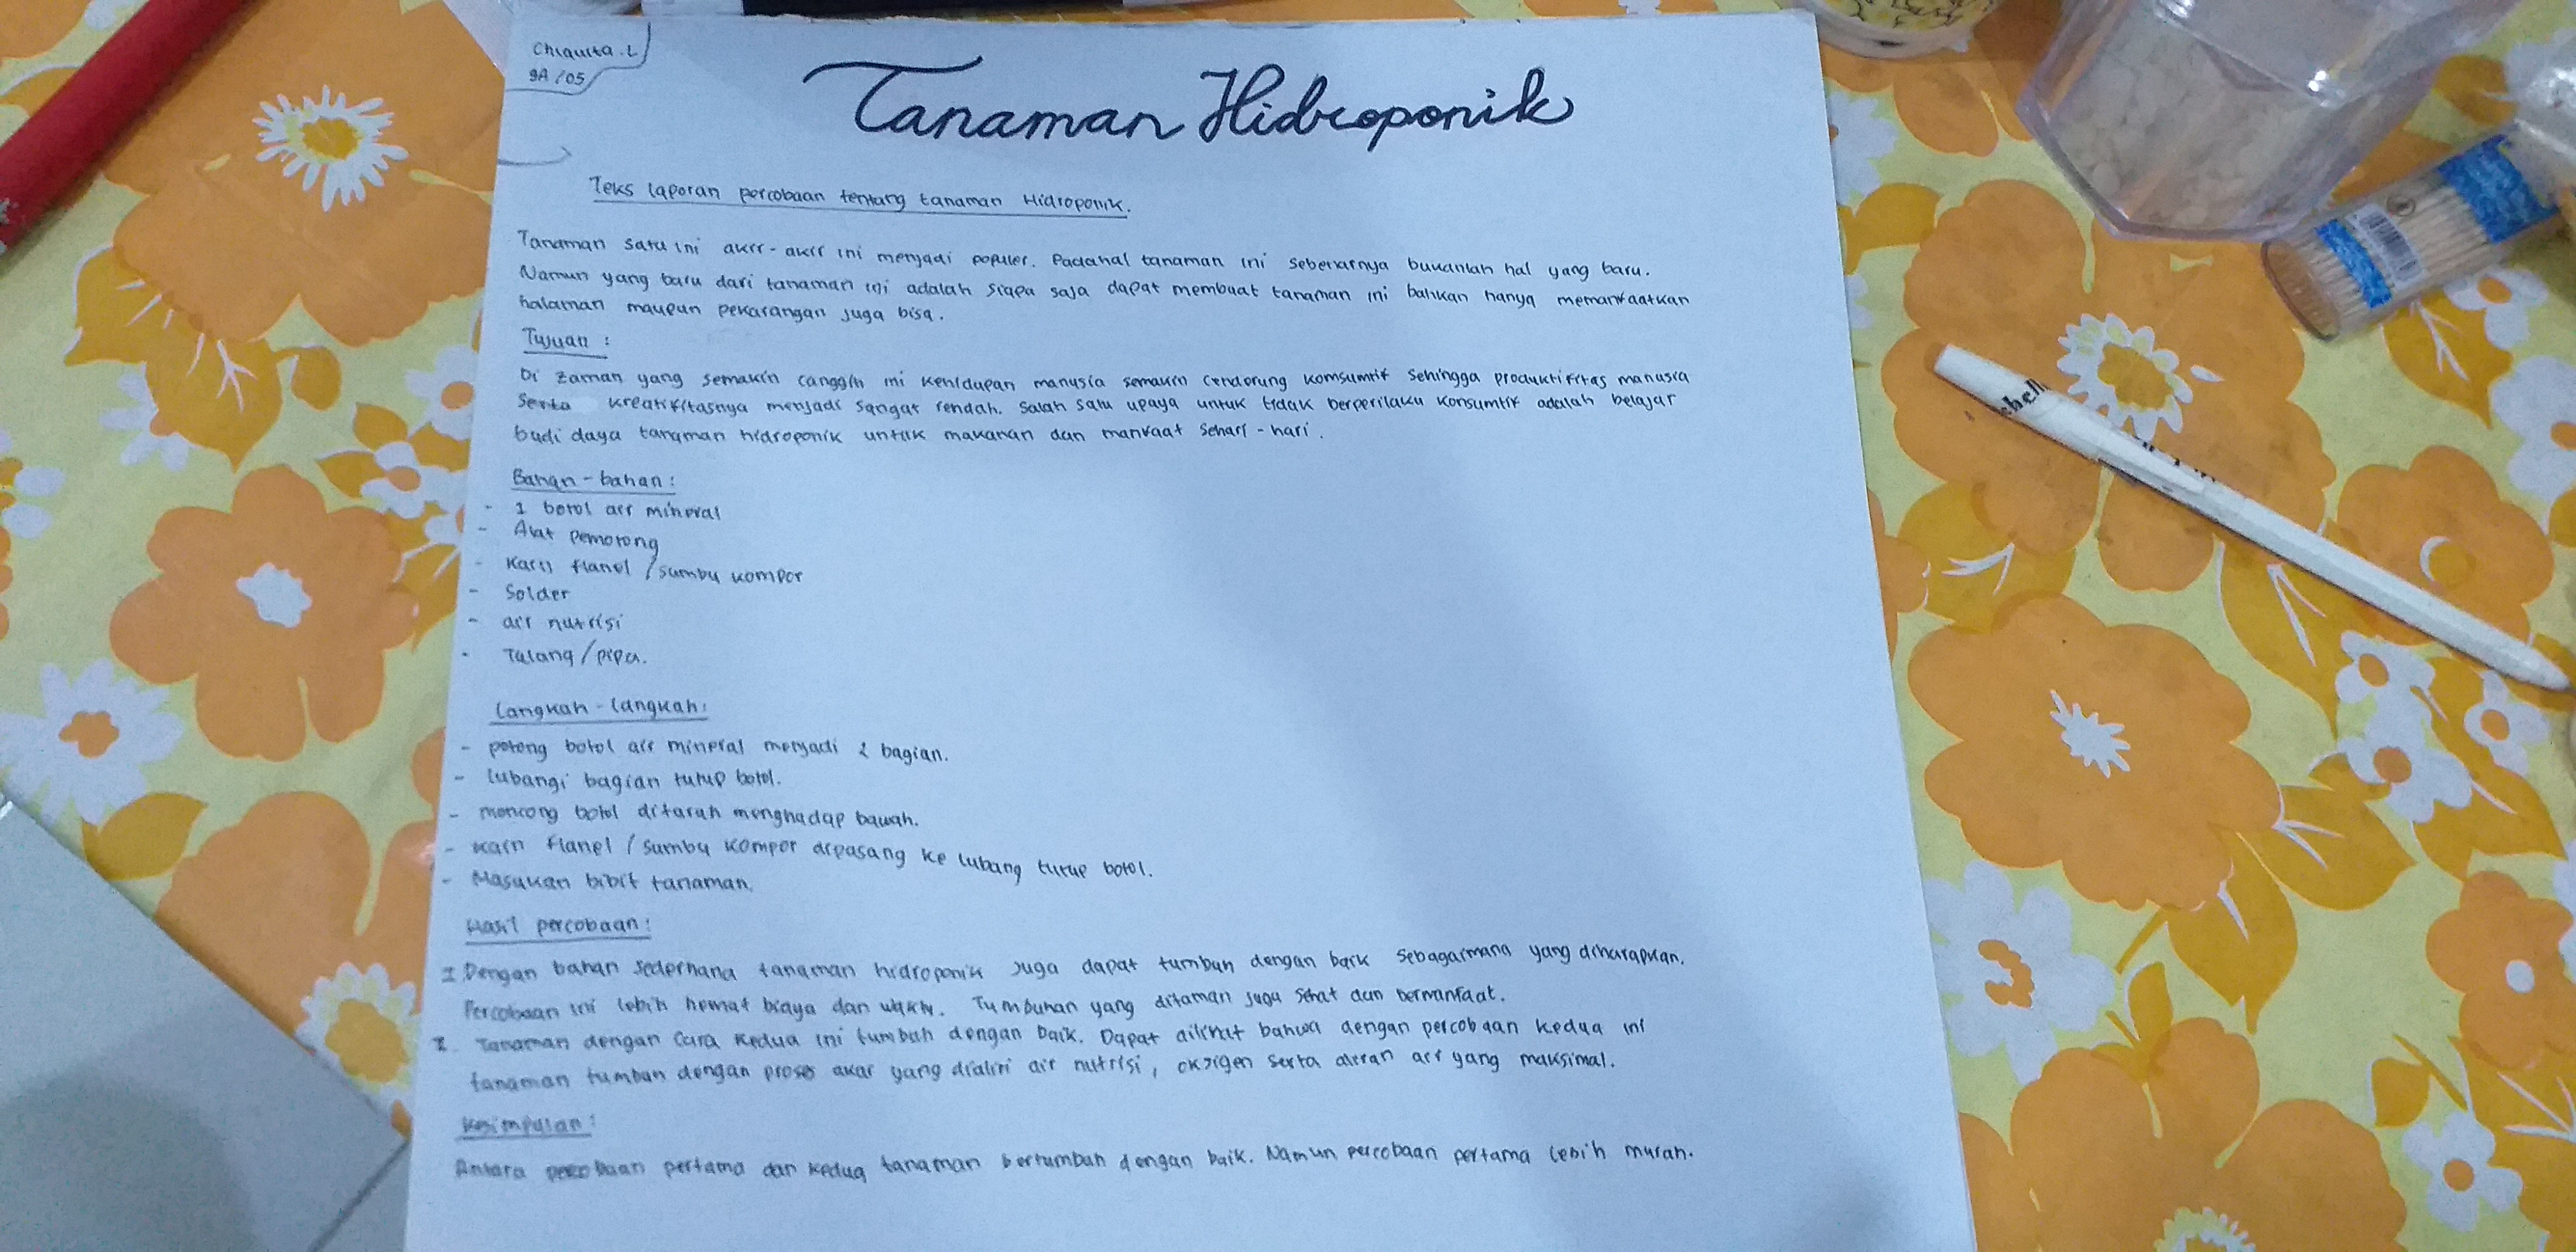 Chiquita.L
9A/05
Tanaman Hidroponik
Teks laporan percobaan tentang tanaman Hidroponik.
Tanaman satu ini akir-akir ini menjadi populer. Padahal tanaman ini sebenarnya bukanlah hal yang baru.
Namun yang baru dari tanaman ini adalah siapa saja dapat membuat tanaman ini bahkan hanya memanfaatkan
halaman maupun pekarangan juga bisa.
Tujuan :
Di zaman yang semakin canggih ini kehidupan manusia semakin cenderung komsumtif sehingga produktifitas manusia
serta kreatifitasnya menjadi sangat rendah. Salah satu upaya untuk tidak berperilaku konsumtif adalah belajar
budi daya tanaman hidroponik untuk makanan dan manfaat sehari-hari.
Bahan-bahan:
- 1 botol air mineral
- Alat pemotong
- Kain flanel /sumbu kompor
- Solder
- air nutrisi
- Talang/pipa.
Langkah-langkah:
- potong botol air mineral menjadi 2 bagian.
- lubangi bagian tutup botol.
- moncong botol ditaruh menghadap bawah.
- kain flanel /sumbu kompor dipasang ke lubang tutup botol.
- Masukan bibit tanaman.
Hasil percobaan:
I Dengan bahan sederhana tanaman hidroponik juga dapat tumbuh dengan baik sebagaimana yang diharapkan.
Percobaan ini lebih hemat biaya dan waktu. Tumbuhan yang ditaman juga sehat dan bermanfaat.
II. Tanaman dengan cara kedua ini tumbuh dengan baik. Dapat dilihat bahwa dengan percobaan kedua ini
tanaman tumbuh dengan proses akar yang dialiri air nutrisi, oksigen serta aliran air yang maksimal.
Kesimpulan:
Antara percobaan pertama dan kedua tanaman bertumbuh dengan baik. Namun percobaan pertama lebih murah.